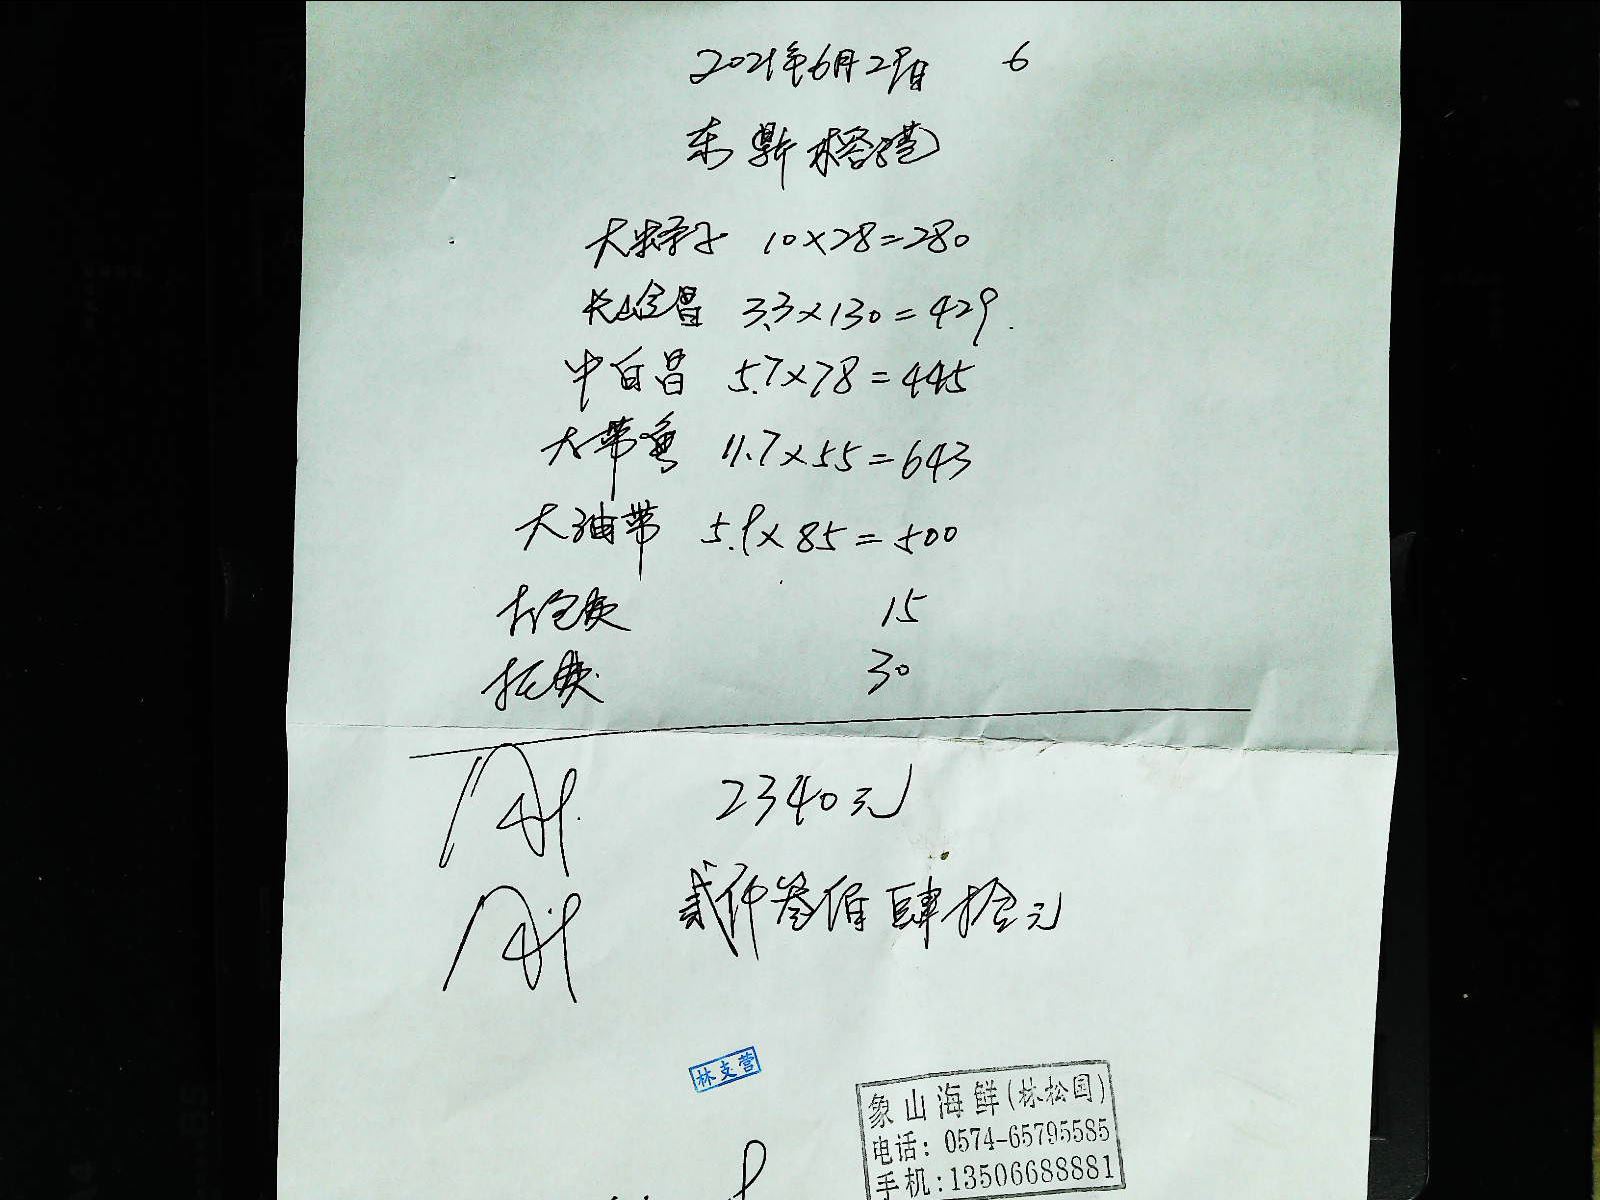 2021年6月29日 6
东鼎榕港
大宗子 10×28=280
长山金昌 3.3×130=429.
中白昌 5.7×78=445
大带鱼 11.7×55=643
大油带 5.9×85=500
打包费 15
托费 30
2340元
贰仟叁佰肆拾元
林支营
象山海鲜(林松国)
电话: 0574-65795585
手机:13506688881